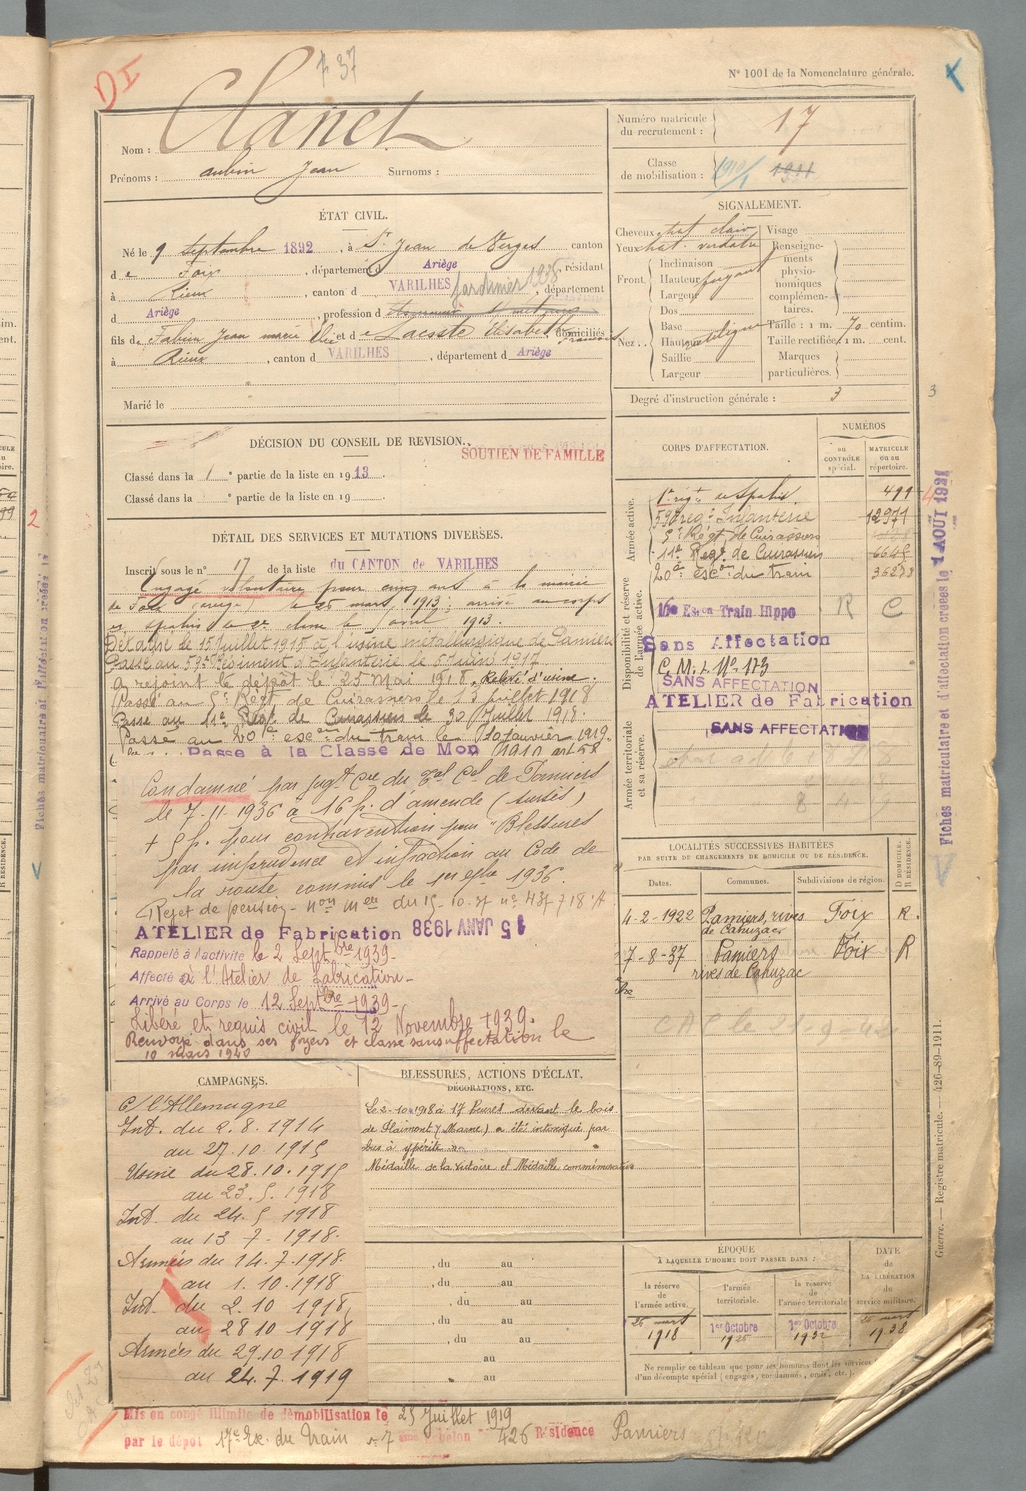 DI
N° 1001 de la Nomenclature générale.
Nom : Clanet
Prénoms : Aubin Jean Surnoms :
Numéro matricule du recrutement : 17
Classe de mobilisation : 1911
ÉTAT CIVIL.
Né le 9 Septembre 1892, à St Jean de Verges canton
de Foix, département d Ariège, résidant
à Rieux, canton d VARILHES, département
jardinier 1936
d Ariège, profession d
fils de Fabien Jean marie et de Lacoste Elisabeth domiciliés
à Rieux, canton d VARILHES, département d Ariège
Marié le
SIGNALEMENT.
Cheveux chat clair
Yeux chat. verdâtre
Front Inclinaison
Hauteur fuyant
Largeur
Nez Dos
Base
Hauteur
Saillie
Largeur
Visage
Renseignements physionomiques complémentaires.
Taille : 1 m. 70 centim.
Taille rectifiée, 1 m. cent.
Marques particulières.
Degré d'instruction générale : 3
DÉCISION DU CONSEIL DE REVISION.
SOUTIEN DE FAMILLE
Classé dans la 1e partie de la liste en 1913
Classé dans la e partie de la liste en 19
DÉTAIL DES SERVICES ET MUTATIONS DIVERSES.
Inscrit sous le n° 17 de la liste du CANTON de VARILHES
Engagé volontaire pour cinq ans à la mairie
de Foix (Ariège) le 26 mars 1913; arrivé au corps
1 avril 1913.
Détaché le 15 Juillet 1915 à l'usine métallurgique de Pamiers
Passé au 59e Régiment d'Infanterie le 5 Juin 1917
A rejoint le dépôt le 25 Mai 1918, Relevé d'usine.
Passé au 5e Régt de Cuirassiers le 13 Juillet 1918
Passé au 11e Régt de Cuirassiers le 30 Juillet 1918.
Passé au 20e escon du train le 10 Janvier 1919.
Passé à la Classe de Mob 1910 art 58
Condamné par jugt cre du Tal Cel de Pamiers
le 7-11-1936 à 16 f. d'amende (sursis)
+ 5 f. pour contravention pour "Blessures
par imprudence et infraction au Code de
la route commis le 1er 7bre 1936.
Rejet de pension
ATELIER de Fabrication 15 JANV 1938
Rappelé à l'activité le 2 Septbre 1939-
Affecté à l'Atelier de Fabrication-
Arrivé au Corps le 12 Septbre 1939-
Libéré et requis civil le 12 Novembre 1939.
Renvoyé dans ses foyers et classé sans affectation le
10 mars 1940
CORPS D'AFFECTATION.
NUMÉROS
au CONTRÔLE spécial.
MATRICULE ou au répertoire.
Armée active.
1er régt de Spahis. 499
59e régt Infanterie 12971
5e Régt de Cuirassiers
11e Régt de Cuirassiers 6645
20e escon du train 36273
Disponibilité et réserve de l'armée active.
16e Escon Train Hippo R C
Sans Affectation
C.M. 1. N° 173
SANS AFFECTATION
ATELIER de Fabrication
Armée territoriale et sa réserve.
SANS AFFECTATION
LOCALITÉS SUCCESSIVES HABITÉES
PAR SUITE DE CHANGEMENTS DE DOMICILE OU DE RÉSIDENCE.
Dates. Communes. Subdivisions de région. D DOMICILE. R RÉSIDENCE.
4-2-1922 Pamiers, rives de Cahuzac Foix R.
7-8-37 Pamiers rives de Cahuzac Foix R
CAMPAGNES.
C/ l'Allemagne
Int. du 2.8.1914
au 27.10.1915
Usine du 28.10.1915
au 23.5.1918
Int. du 24.5 1918
au 13 7 - 1918.
Armées du 14.7.1918.
au 1.10.1918
Int. du 2.10 1918,
au 28 10 1918
Armées du 29.10.1918
au 24.7.1919
BLESSURES, ACTIONS D'ÉCLAT,
DÉCORATIONS, ETC.
Le 2-10-1918 à 17 heures devant le bois
de (Marne) a été intoxiqué par
obus à ypérite
Médaille de la Victoire et Médaille commémorative
, du au
, du au
, du au
, du au
, du au
au
au
ÉPOQUE
À LAQUELLE L'HOMME DOIT PASSER DANS :
la réserve de l'armée active.
l'armée territoriale.
la réserve de l'armée territoriale
DATE de LA LIBÉRATION du service militaire.
26 mars 1918
1er Octobre 1926
1er Octobre 1932
26 mars 1938
Ne remplir ce tableau que pour les hommes dont les services
d'un décompte spécial (engagés, condamnés, omis, etc.).
Mis en congé illimité de démobilisation le 25 Juillet 1919
par le dépôt 17e Ex. du Train n° 7 échelon 426 Résidence Pamiers
Fiches matriculaire et d'affectation créées le 1 AOÛT 1921
Guerre. — Registre matricule. — 426-89-1911.